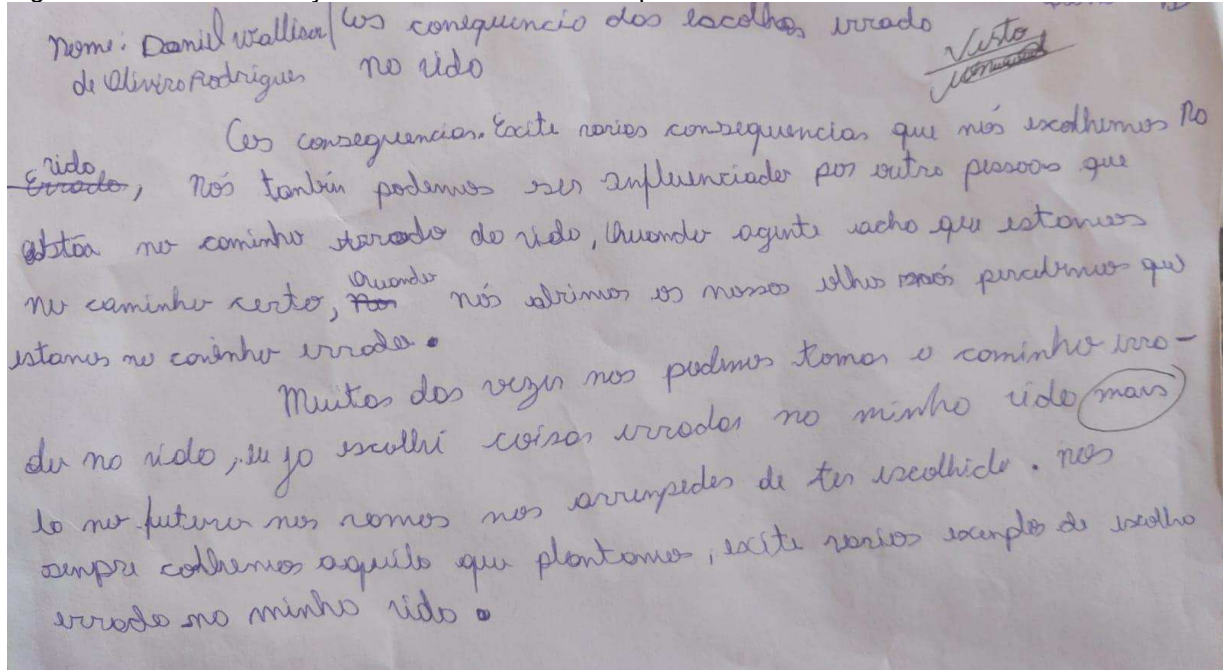 Nome: Daniel Wallison / As consequencia das escolhas errada
de Oliveira Rodrigues na vida
Visto
As consequencias. Excite varias consequencias que nós escolhemos na
Errada vida, nós tanbén podemos ser influenciados por outra pessoas que
estóa no caminho errado da vida, Quando agente acha que estamos
no caminho certo, Quando nós abrimos os nossos olhos nós percebemos que
estamos no caminho errado.
Muitas das vezes nos podemos tomar o caminho erra-
do na vida, eu ja escolhi coisas erradas na minha vida mais
la no futuro nos vamos nos arrempedes de ter escolhido. nos
sempre colhemos aquilo que plantamos, excite varios exemplos de escolha
errada na minha vida.